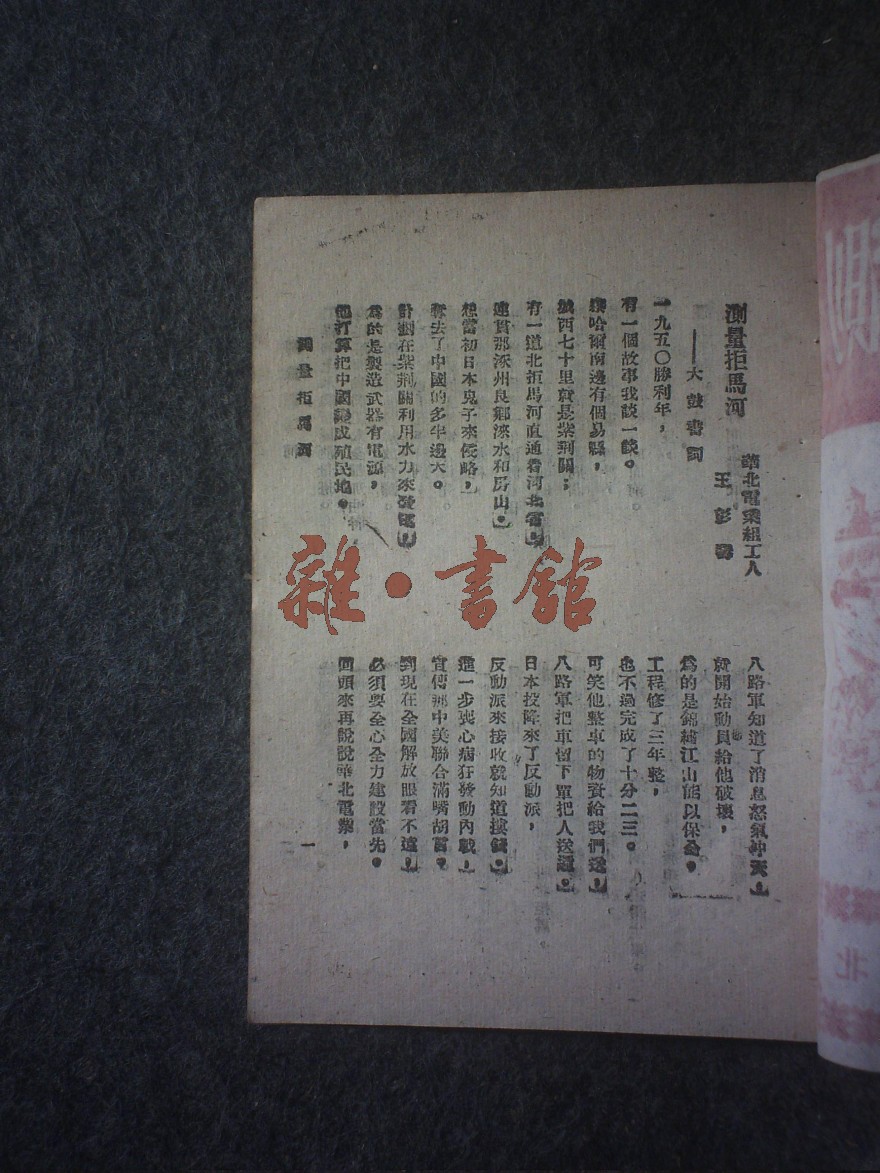 測量拒馬河
——大鼓書詞
華北電業組工人
王彭壽
一九五〇勝利年，
有一個故事我談一談。
察哈爾南邊有個易縣，
城西七十里就是紫荆關；
有一道北拒馬河直通着河北省，
連貫那涿州良鄉淶水和房山。
想當初日本鬼子來侵略，
奪去了中國的多半邊天。
計劃在紫荆關利用水力來發電，
爲的是製造武器有電源，
他打算把中國變成殖民地。
八路軍知道了消息怒氣冲天，
就開始動員給他破壞，
爲的是錦繡江山能以保全。
工程修了三年整，
也不過完成了十分二三。
可笑他整車的物資給我們送，
八路軍把車留下單把人送還。
日本投降來了反動派，
反動派來接收就知道摟錢。
進一步喪心病狂發動內戰，
宣傳那中美聯合滿嘴胡言。
到現在全國解放眼看不遠，
必須要全心全力建設當先。
回頭來再說說華北電業，
測量拒馬河
一
雜·書館
測
量
北